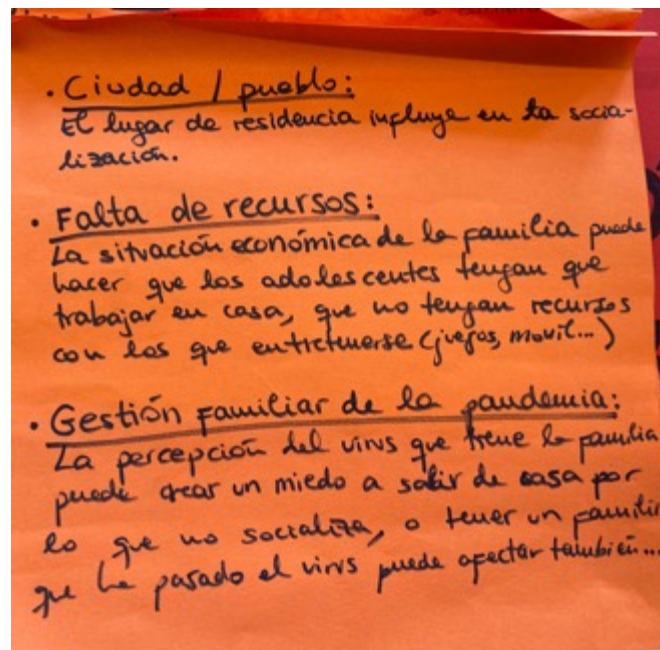 · Ciudad / pueblo:
El lugar de residencia influye en la socia-
lización.
· Falta de recursos:
La situación económica de la familia puede
hacer que los adolescentes tengan que
trabajar en casa, que no tengan recursos
con los que entretenerse (juegos, movil...)
· Gestión familiar de la pandemia:
La percepción del virus que tiene la familia
puede crear un miedo a salir de casa por
lo que no socializa, o tener un familiar
que ha pasado el virus puede afectar también...